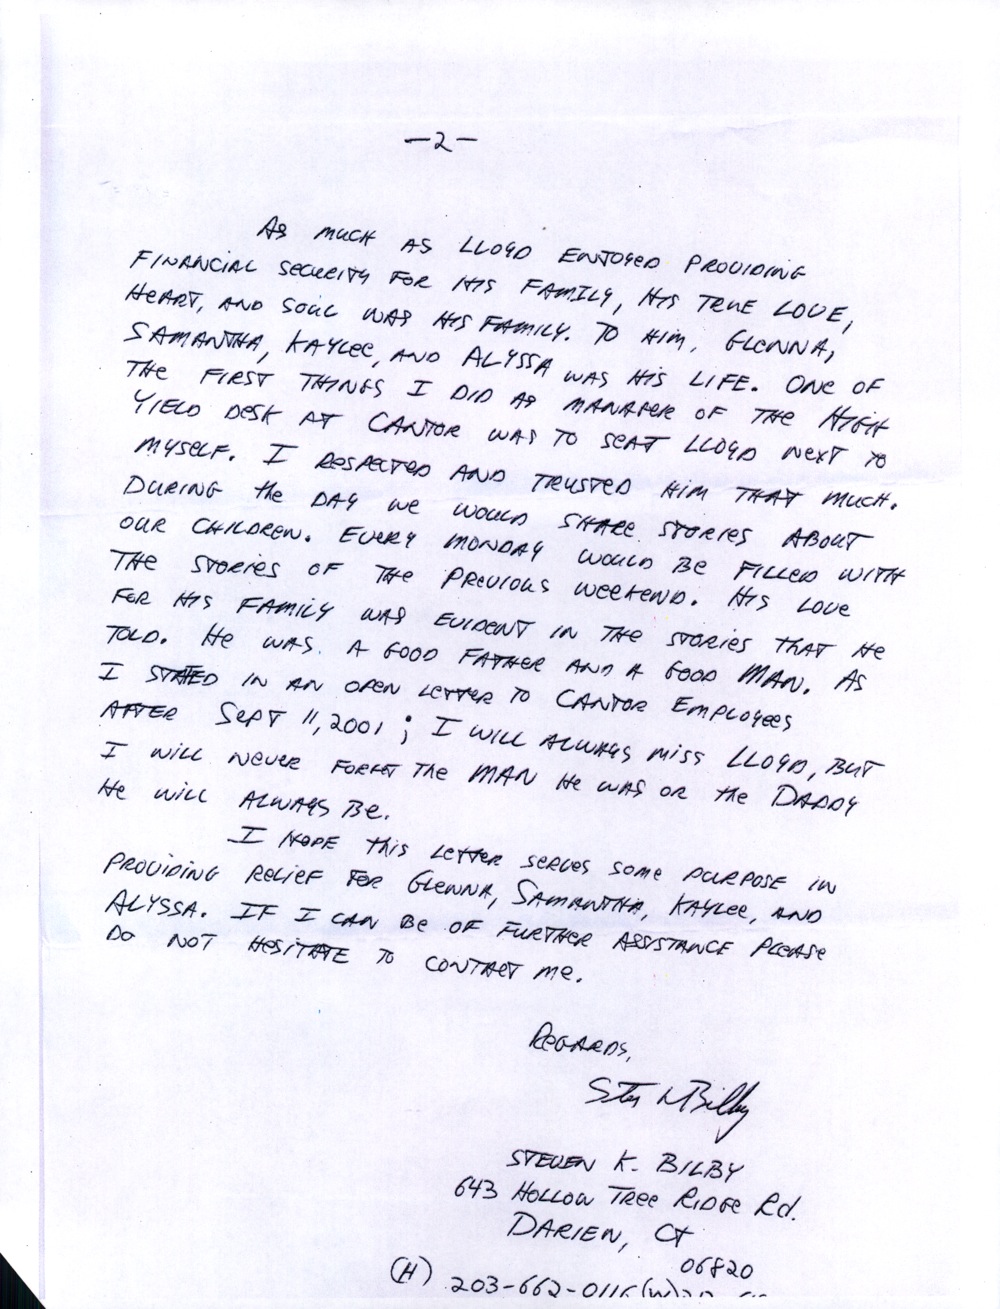 —2—
AS MUCH AS LLOYD ENJOYED PROVIDING
FINANCIAL SECURITY FOR HIS FAMILY, HIS TRUE LOVE,
HEART, AND SOUL WAS HIS FAMILY. TO HIM, GLENNA,
SAMANTHA, KAYLEE, AND ALYSSA WAS HIS LIFE. ONE OF
THE FIRST THINGS I DID AS MANAGER OF THE HIGH
YIELD DESK AT CANTOR WAS TO SEAT LLOYD NEXT TO
MYSELF. I RESPECTED AND TRUSTED HIM THAT MUCH.
DURING the DAY WE WOULD SHARE STORIES ABOUT
OUR CHILDREN. EVERY MONDAY WOULD BE FILLED WITH
THE STORIES OF THE PREVIOUS WEEKEND. HIS LOVE
FOR HIS FAMILY WAS EVIDENT IN THE STORIES THAT HE
TOLD. HE WAS A GOOD FATHER AND A GOOD MAN. AS
I STATED IN AN OPEN LETTER TO CANTOR EMPLOYEES
AFTER SEPT 11, 2001; I WILL ALWAYS MISS LLOYD, BUT
I WILL NEVER FORGET THE MAN HE WAS OR the DADDY
HE WILL ALWAYS BE.
I HOPE this LETTER SERVES SOME PURPOSE IN
PROVIDING RELIEF FOR GLENNA, SAMANTHA, KAYLEE, AND
ALYSSA. IF I CAN BE OF FURTHER ASSISTANCE PLEASE
DO NOT HESITATE TO CONTACT ME.
REGARDS,
STEVEN K. BILBY
643 HOLLOW TREE RIDGE Rd.
DARIEN, Ct
06820
(H) 203-662-0116 (W)